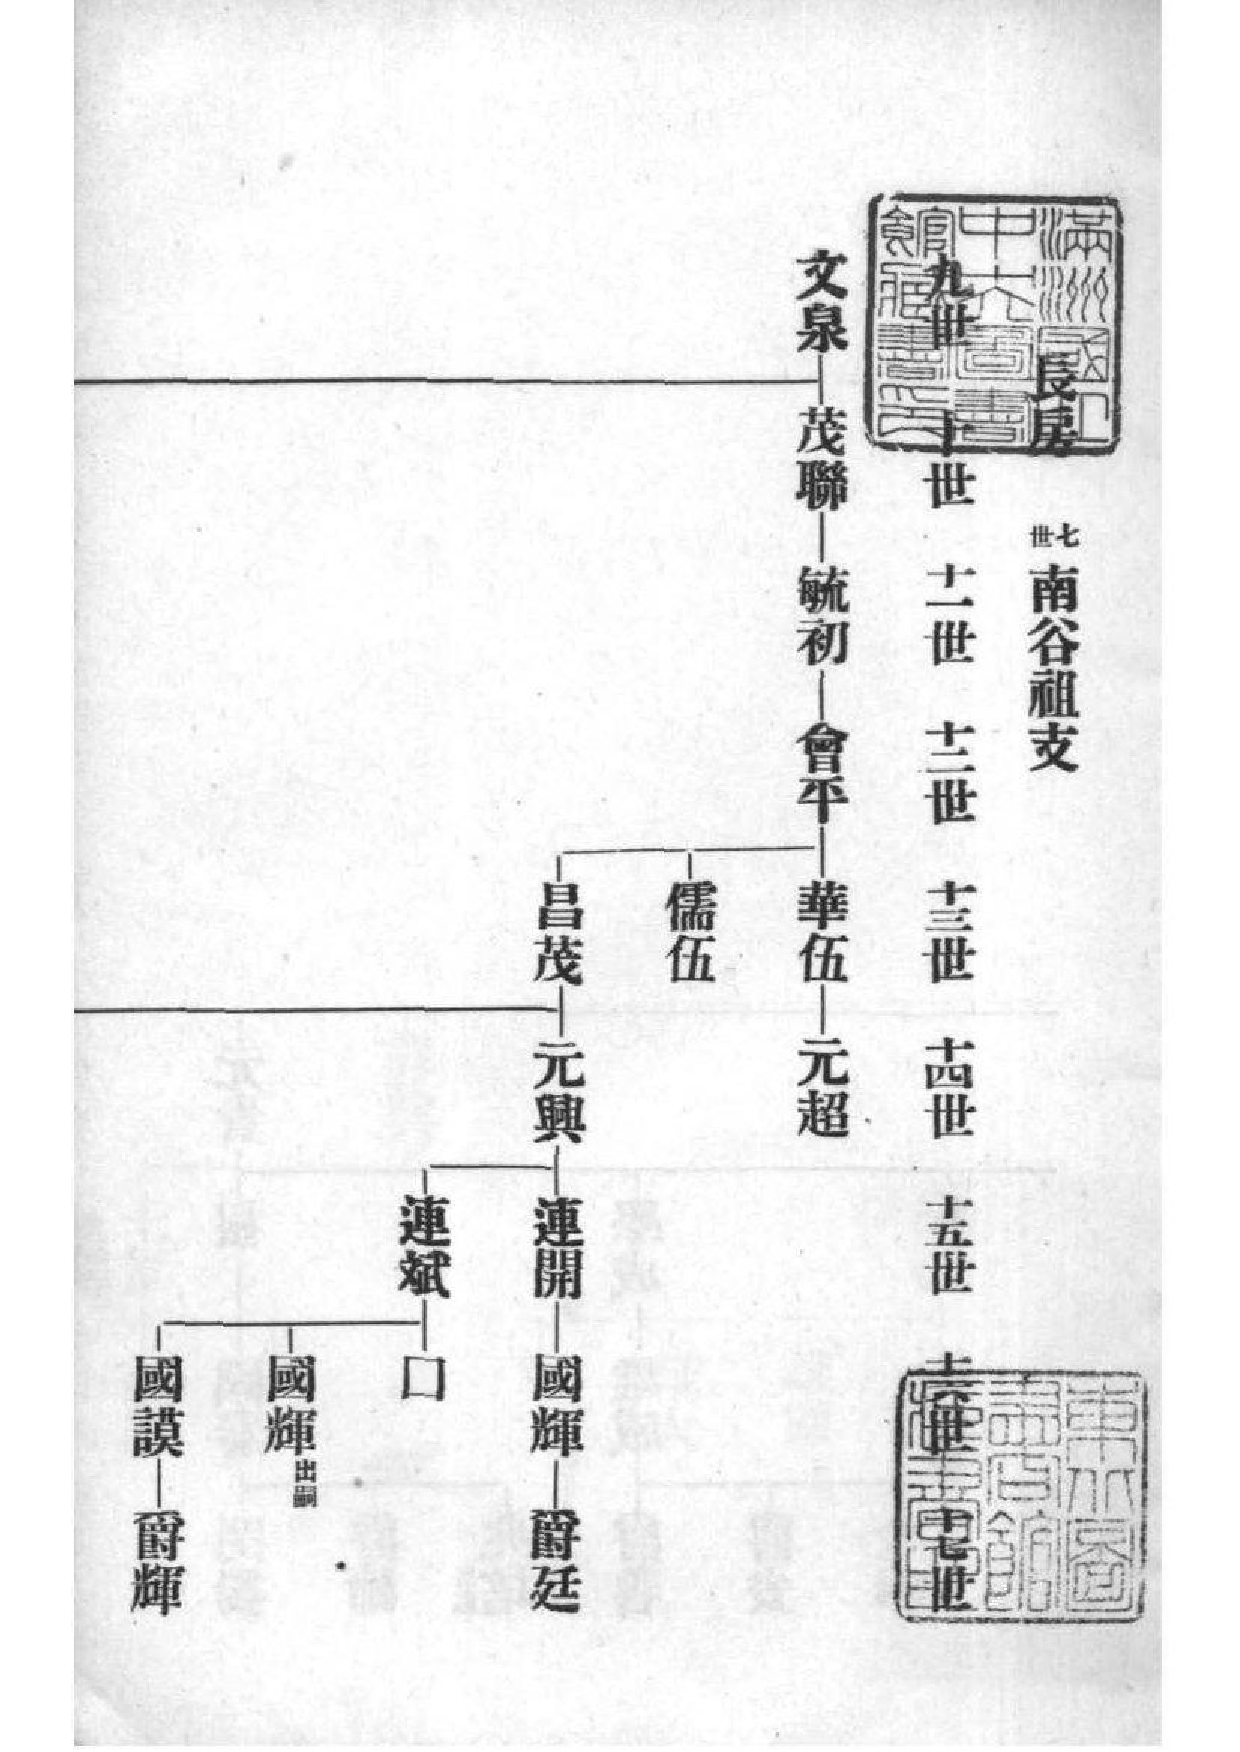 長房 七世 南谷祖支
九世 十世 十一世 十二世 十三世 十四世 十五世 十六世 十七世
文泉 茂聯 毓初 會平 華伍 元超
儒伍
昌茂 元興 連開 國輝 爵廷
連斌 口
國輝 出嗣
國謨 爵輝
滿洲國立
中央圖書
館藏書印
東北圖
書館